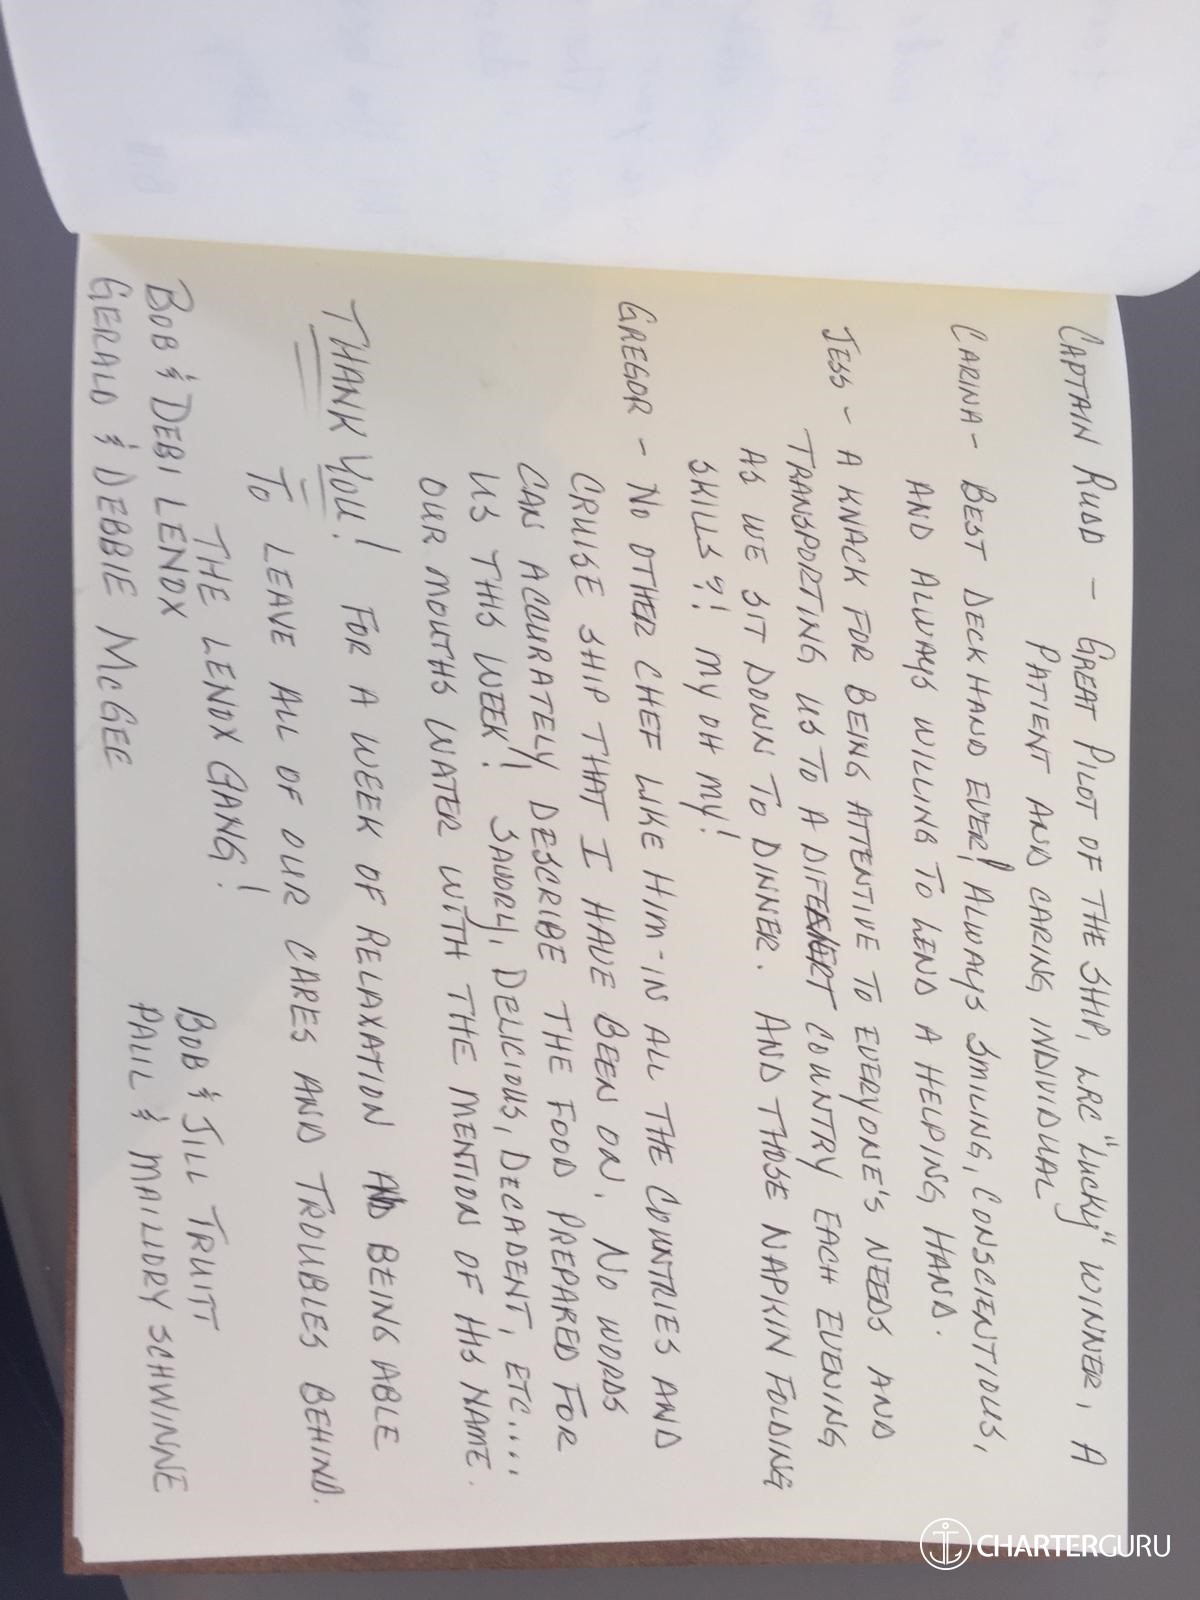 CAPTAIN RUDD - GREAT PILOT OF THE SHIP, LRC "LUCKY" WINNER, A
PATIENT AND CARING INDIVIDUAL
CARINA - BEST DECKHAND EVER! ALWAYS SMILING, CONSCIENTIOUS,
AND ALWAYS WILLING TO LEND A HELPING HAND.
JESS - A KNACK FOR BEING ATTENTIVE TO EVERYONE'S NEEDS AND
TRANSPORTING US TO A DIFERENT COUNTRY EACH EVENING
AS WE SIT DOWN TO DINNER. AND THOSE NAPKIN FOLDING
SKILLS?! MY OH MY!
GREGOR - NO OTHER CHEF LIKE HIM - IN ALL THE COUNTRIES AND
CRUISE SHIP THAT I HAVE BEEN ON, NO WORDS
CAN ACCURATELY DESCRIBE THE FOOD PREPARED FOR
US THIS WEEK! SAVORY, DELICIOUS, DECADENT, ETC....
OUR MOUTHS WATER WITH THE MENTION OF HIS NAME.
THANK YOU! FOR A WEEK OF RELAXATION AND BEING ABLE
TO LEAVE ALL OF OUR CARES AND TROUBLES BEHIND.
THE LENOX GANG!
BOB & DEBI LENOX
GERALD & DEBBIE MCGEE
BOB & JILL TRUITT
PAUL & MALLORY SCHWINNE
CHARTERGURU